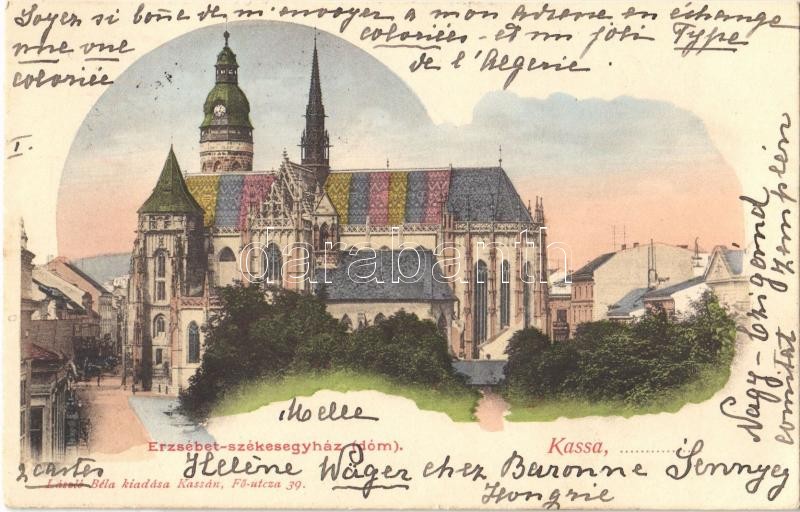 Soyez si boñe de m'envoyer a mon adresse en échange
une vne coloriées - et un joli Type
coloriée de l'Algerie.
I.
darabanth
Nagy-Azigard
comitat Zemplén
Melle
Erzsébet-székesegyház (dóm).
Kassa, ............
2 cartes
Helène Wäger chez Baronne Sennyey
László Béla kiadása Kassán, Fő-utcza 39.
Hongrie